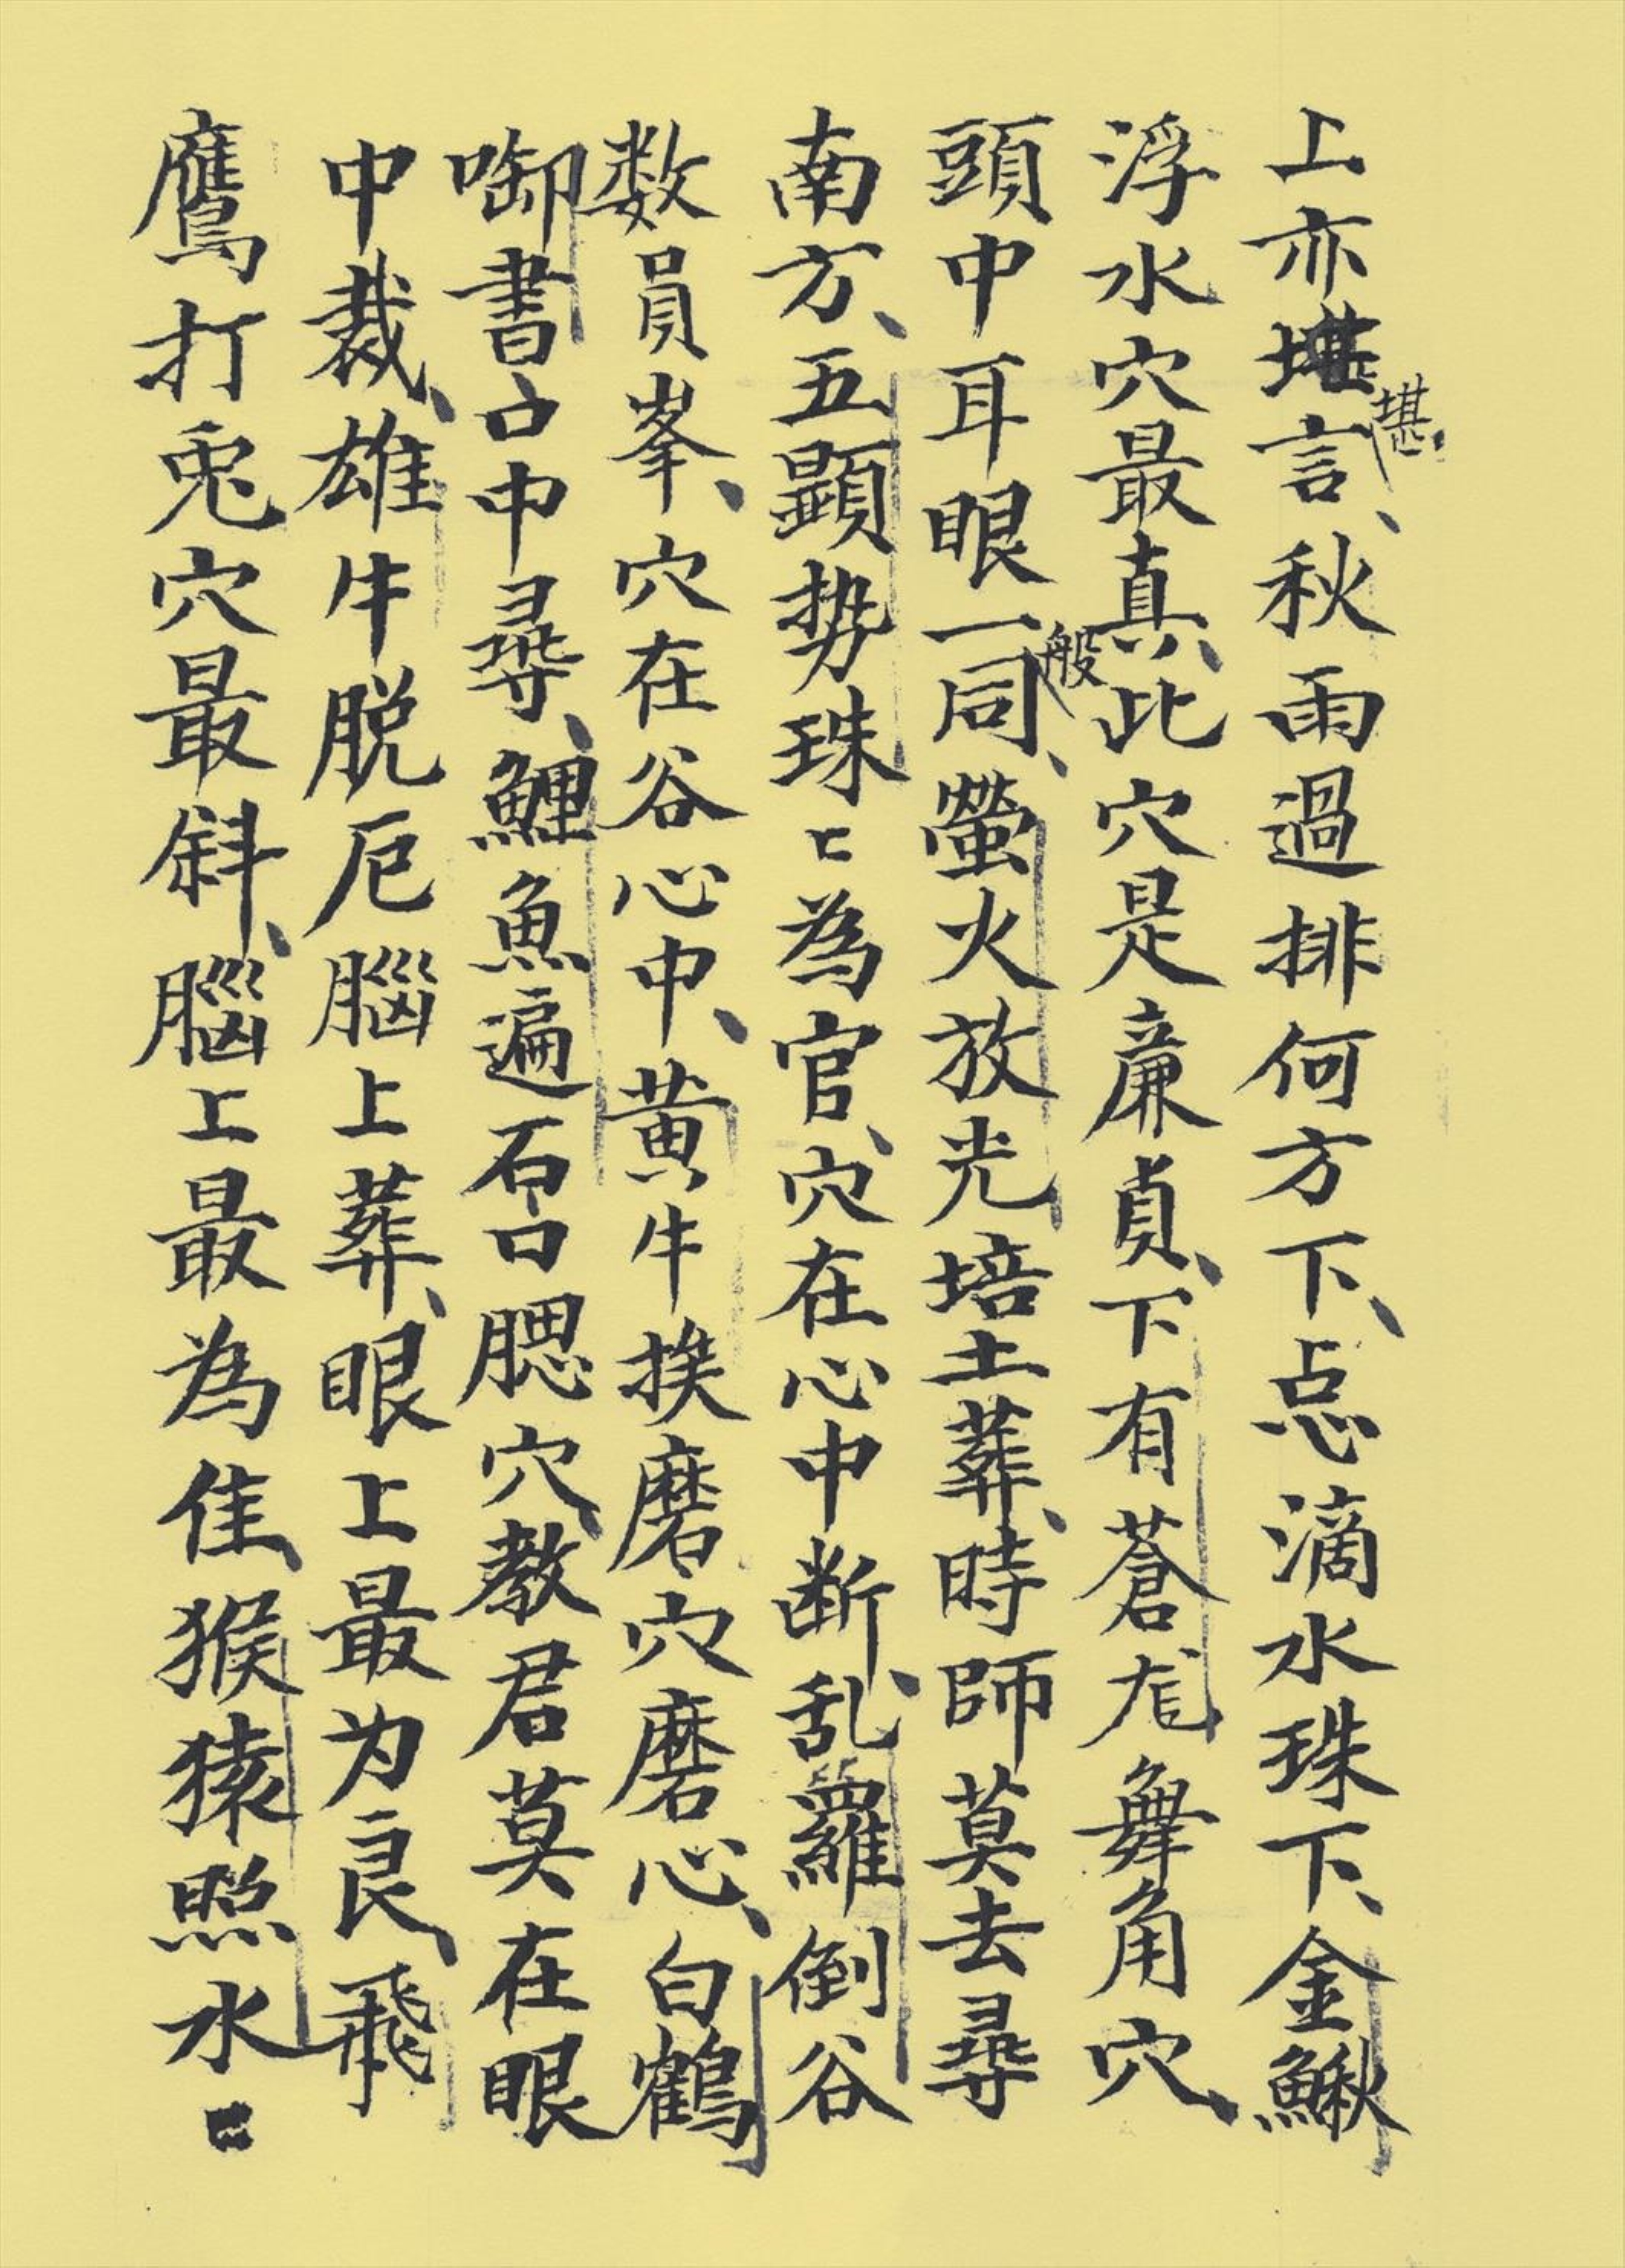 上亦堪言、秋雨過排何方下、点滴水珠下、金鰍
堪
浮水穴最真、此穴是廉貞、下有蒼尨舞角穴、
頭中耳眼一同、螢火放光培土葬、時師莫去尋
般
南方、五顕势珠〻為官、穴在心中断、乱羅倒谷
数員峯、穴在谷心中、黄牛挨磨穴磨心、白鶴
啣書口中尋、鯉魚遍石口腮穴、教君莫在眼
中裁、雄牛脱厄腦上葬、眼上最为良、飛
鷹打兎穴最斜、腦上最為佳、猴猿照水〻